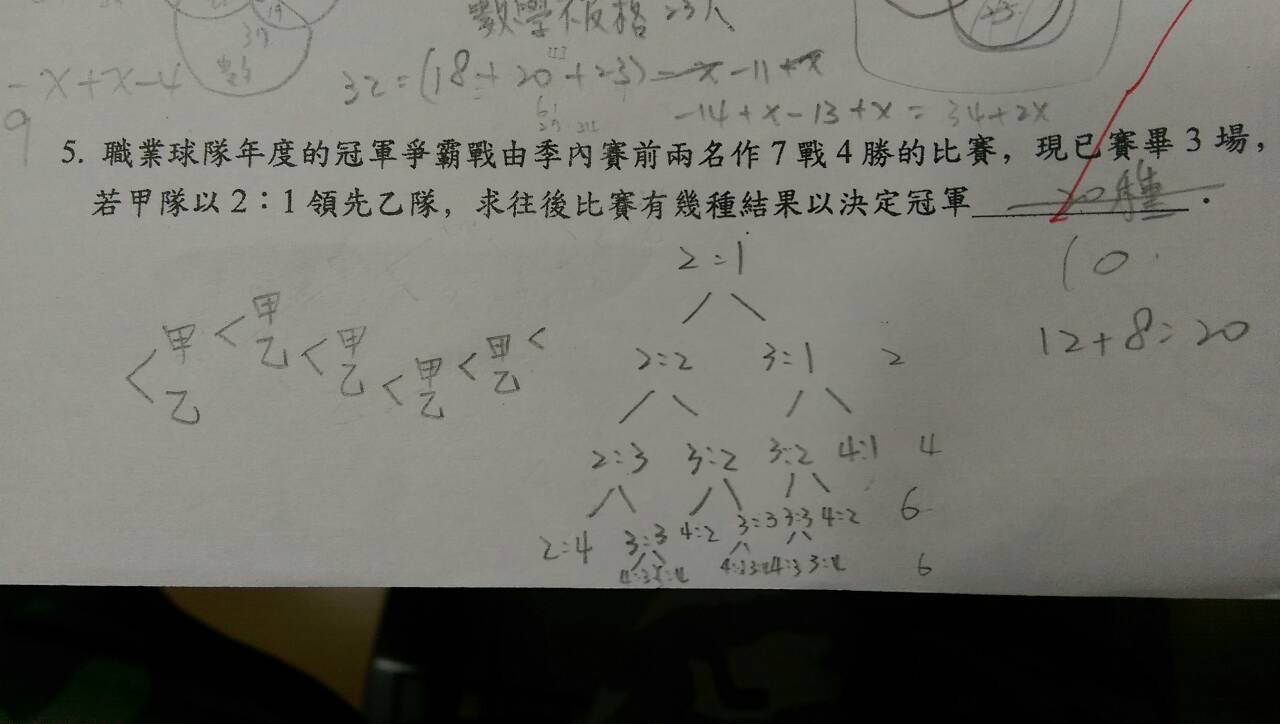 數學不及格 23人
-x+x-4
32=(18+20+23)-x-11+x
-14+x-13+x=34+2x
9
5. 職業球隊年度的冠軍爭霸戰由季內賽前兩名作7戰4勝的比賽，現已賽畢3場，
若甲隊以2：1領先乙隊，求往後比賽有幾種結果以決定冠軍 20種 .
2:1
10
12+8=20
甲 甲 甲 甲 甲
乙 乙 乙 乙 乙
2:2 3:1 2
2:3 3:2 3:2 4:1 4
2:4 3:3 4:2 3:3 3:3 4:2 6
4:3 3:4 4:3 3:4 4:3 3:4 6